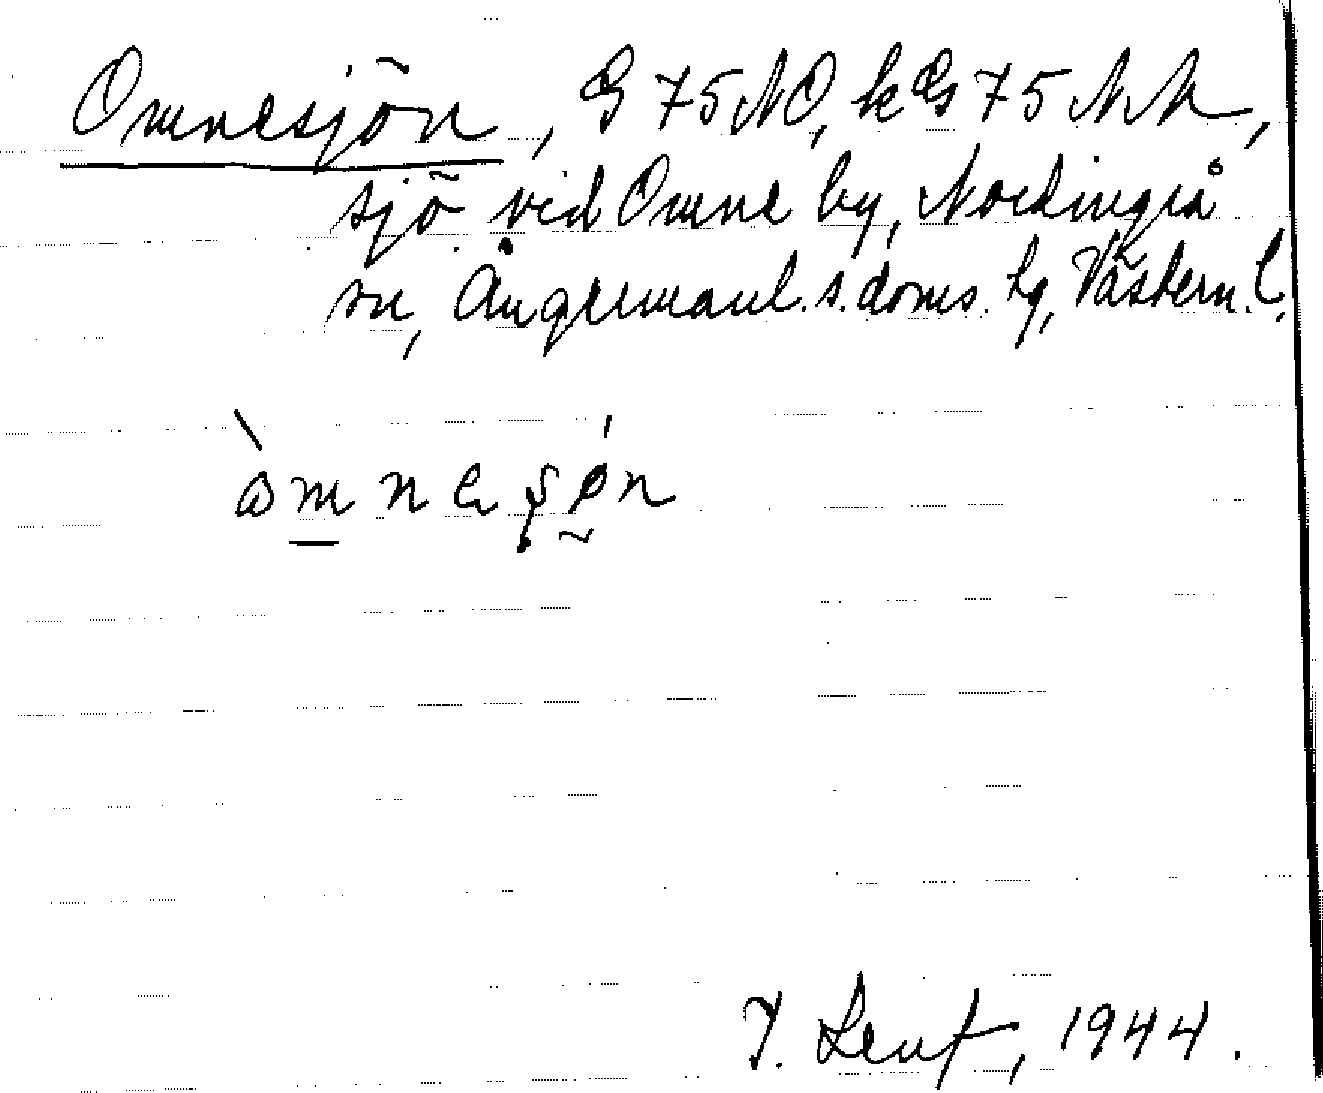 Omnesjön, G 75 NO, k G 75 NN,
sjö vid Omne by, Nordingrå
sn, Ångermanl. s. doms. tg, Västern. l.
òmnesǿn
T. Leuf, 1944.